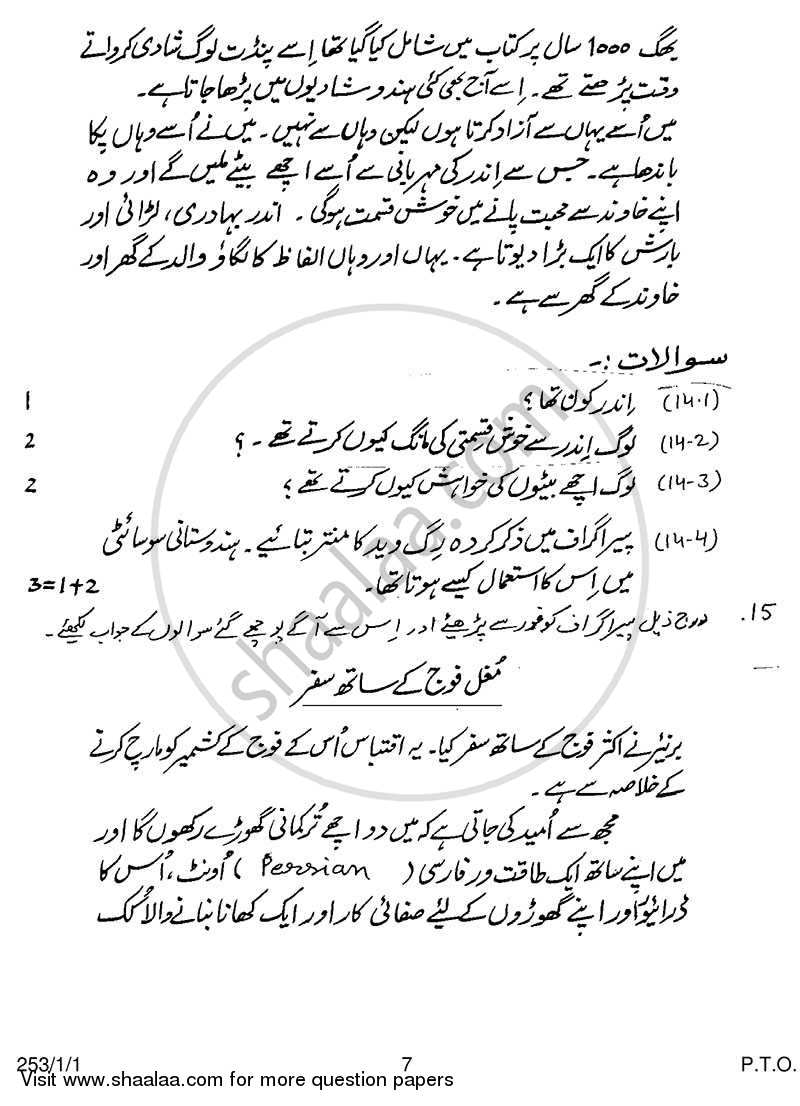 بھگ 1000 سال پر کتاب میں شامل کیا گیا تھا اِسے پنڈت لوگ شادی کرواتے
وقت پڑھتے تھے۔ اِسے آج بھی کئی ہندو شادیوں میں پڑھا جاتا ہے۔
میں اُسے یہاں سے آزاد کرتا ہوں لیکن وہاں سے نہیں۔ میں نے اُسے وہاں پکا
باندھا ہے۔ جس سے اِندر کی مہربانی سے اُسے اچھے بیٹے ملیں گے اور وہ
اپنے خاوند سے محبت پانے میں خوش قسمت ہوگی۔ اندر بہادری، لڑائی اور
بارش کا ایک بڑا دیوتا ہے۔ یہاں اور وہاں الفاظ کا لگاؤ والد کے گھر اور
خاوند کے گھر سے ہے۔
سوالات :-
(14.1) اِندر کون تھا؟ 1
(14-2) لوگ اِندر سے خوش قسمتی کی مانگ کیوں کرتے تھے۔؟ 2
(14-3) لوگ اچھے بیٹوں کی خواہش کیوں کرتے تھے؟ 2
(14-4) پیراگراف میں ذکر کردہ رِگ وید کا منتر بتائیے۔ ہندوستانی سوسائٹی
میں اِس کا استعمال کیسے ہوتا تھا۔ 3=1+2
15. درج ذیل پیراگراف کو غور سے پڑھئے اور اِس سے آگے پوچھے گئے سوالوں کے جواب لکھئے۔
مُغل فوج کے ساتھ سفر
برنیئر نے اکثر فوج کے ساتھ سفر کیا۔ یہ اقتباس اُس کے فوج کے کشمیر کو مارچ کرنے
کے خلاصہ سے ہے۔
مجھ سے اُمید کی جاتی ہے کہ میں دو اچھے تُرکمانی گھوڑے رکھوں گا اور
میں اپنے ساتھ ایک طاقت ور فارسی (Perssian) اُونٹ، اُس کا
ڈرائیور اور اپنے گھوڑوں کے لئے صفائی کار اور ایک کھانا بنانے والا کُک
253/1/1 7 P.T.O.
Visit www.shaalaa.com for more question papers
shaalaa.com